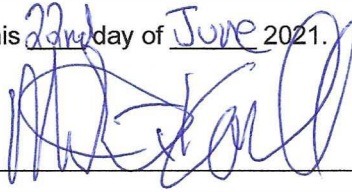 his 22nd day of June 2021.